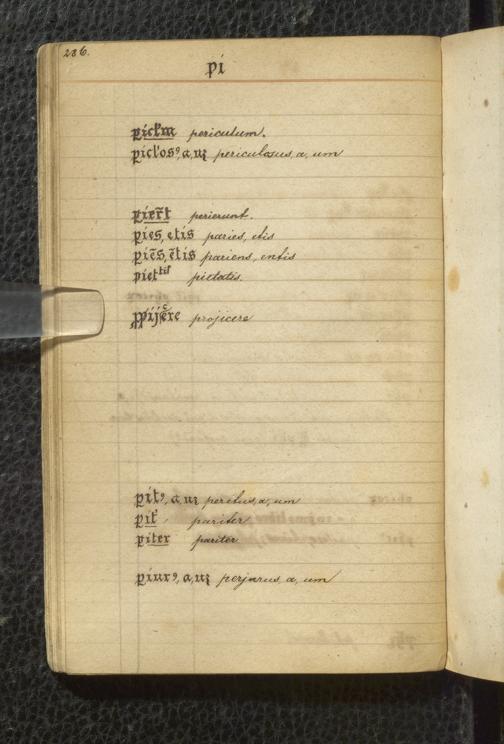 286.
pi
picl'm periculum.
picl'osꝰ, a, uɱ periculosus, a, um
pier̄t perierunt.
pies, etis paries, etis
piēs, ētis pariens, entis
pietᵗⁱˢ pietatis.
projicere
pitꝰ, a, uɱ peritus, a, um
pit' pariter
piter pariter
piurꝰ, a, uɱ perjurus, a, um